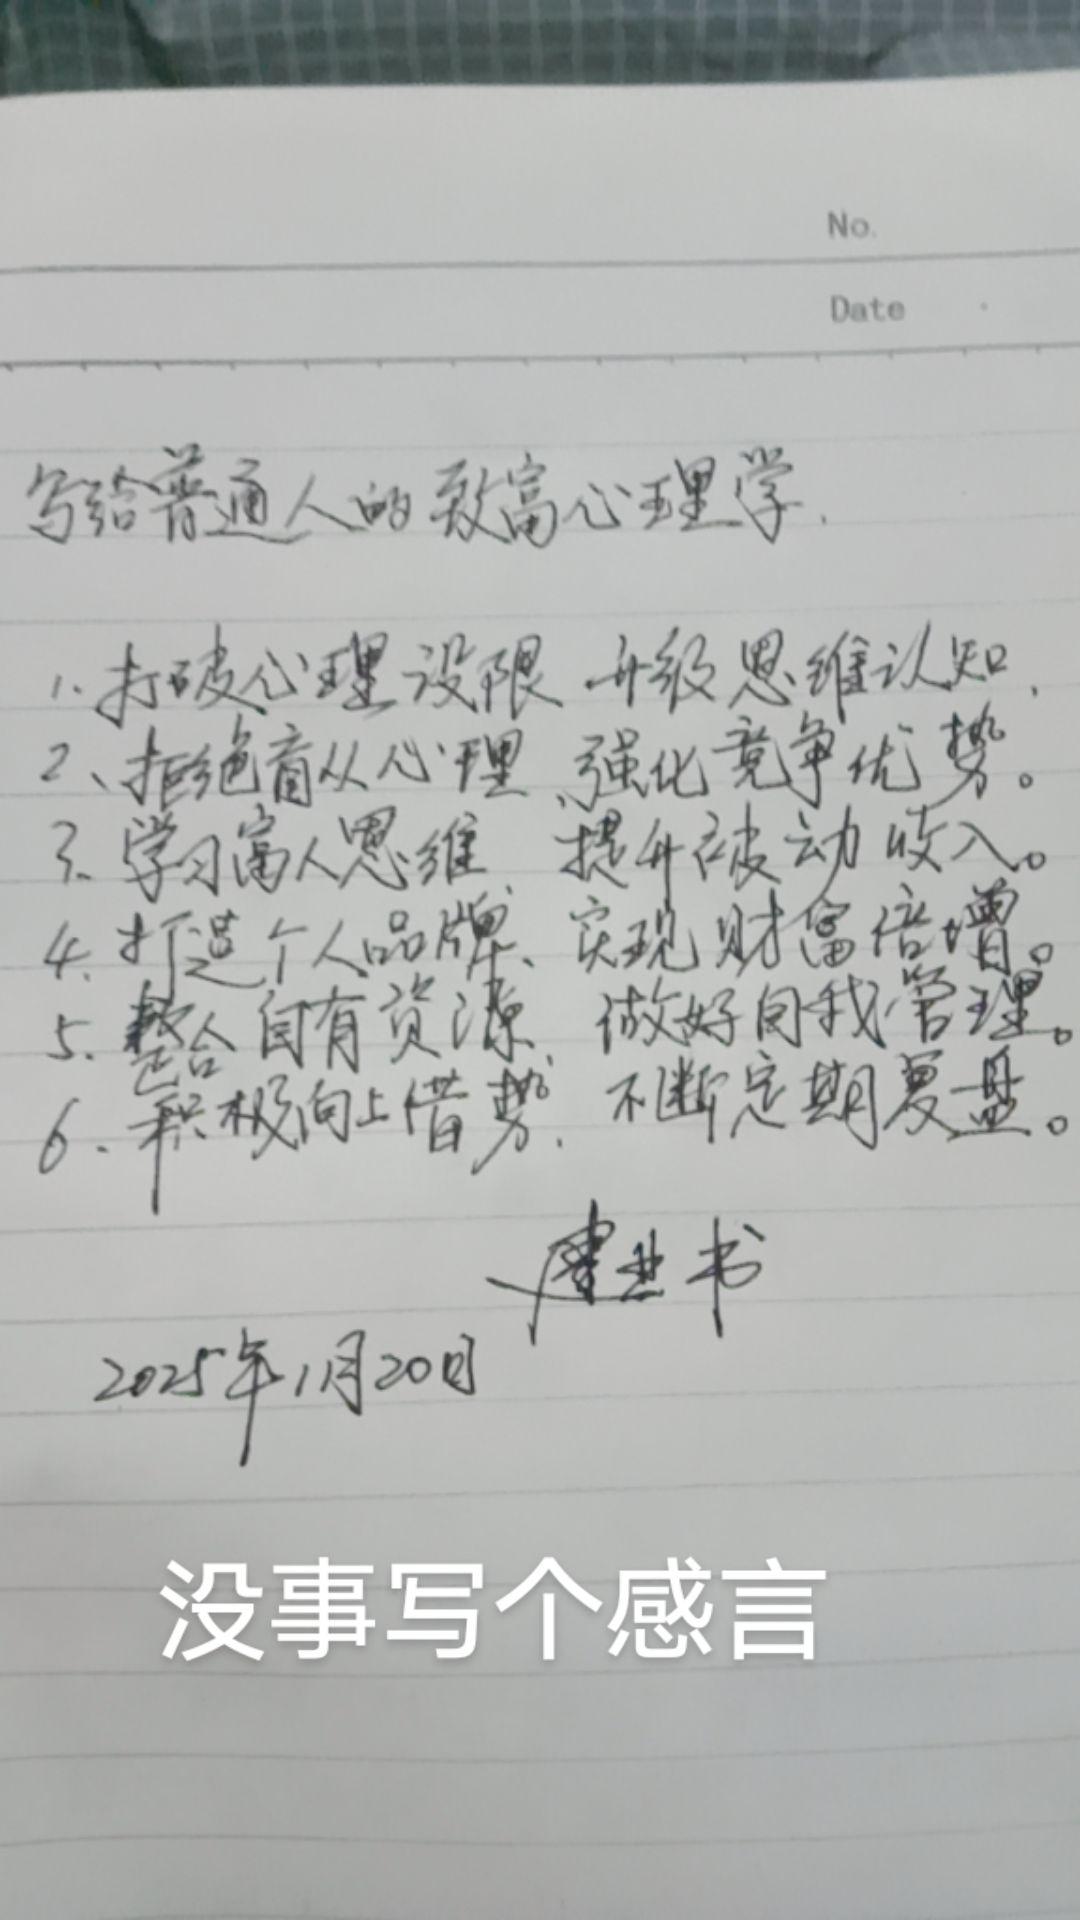 No.
Date
写给普通人的致富心理学.
1.打破心理设限 升级思维认知.
2、拒绝盲从心理 强化竞争优势。
3.学习富人思维 提升被动收入。
4.打造个人品牌、实现财富倍增。
5.整合自有资源,做好自我管理。
6.积极向上借势,不断定期复盘。
建业书
2025年1月20日
没事写个感言